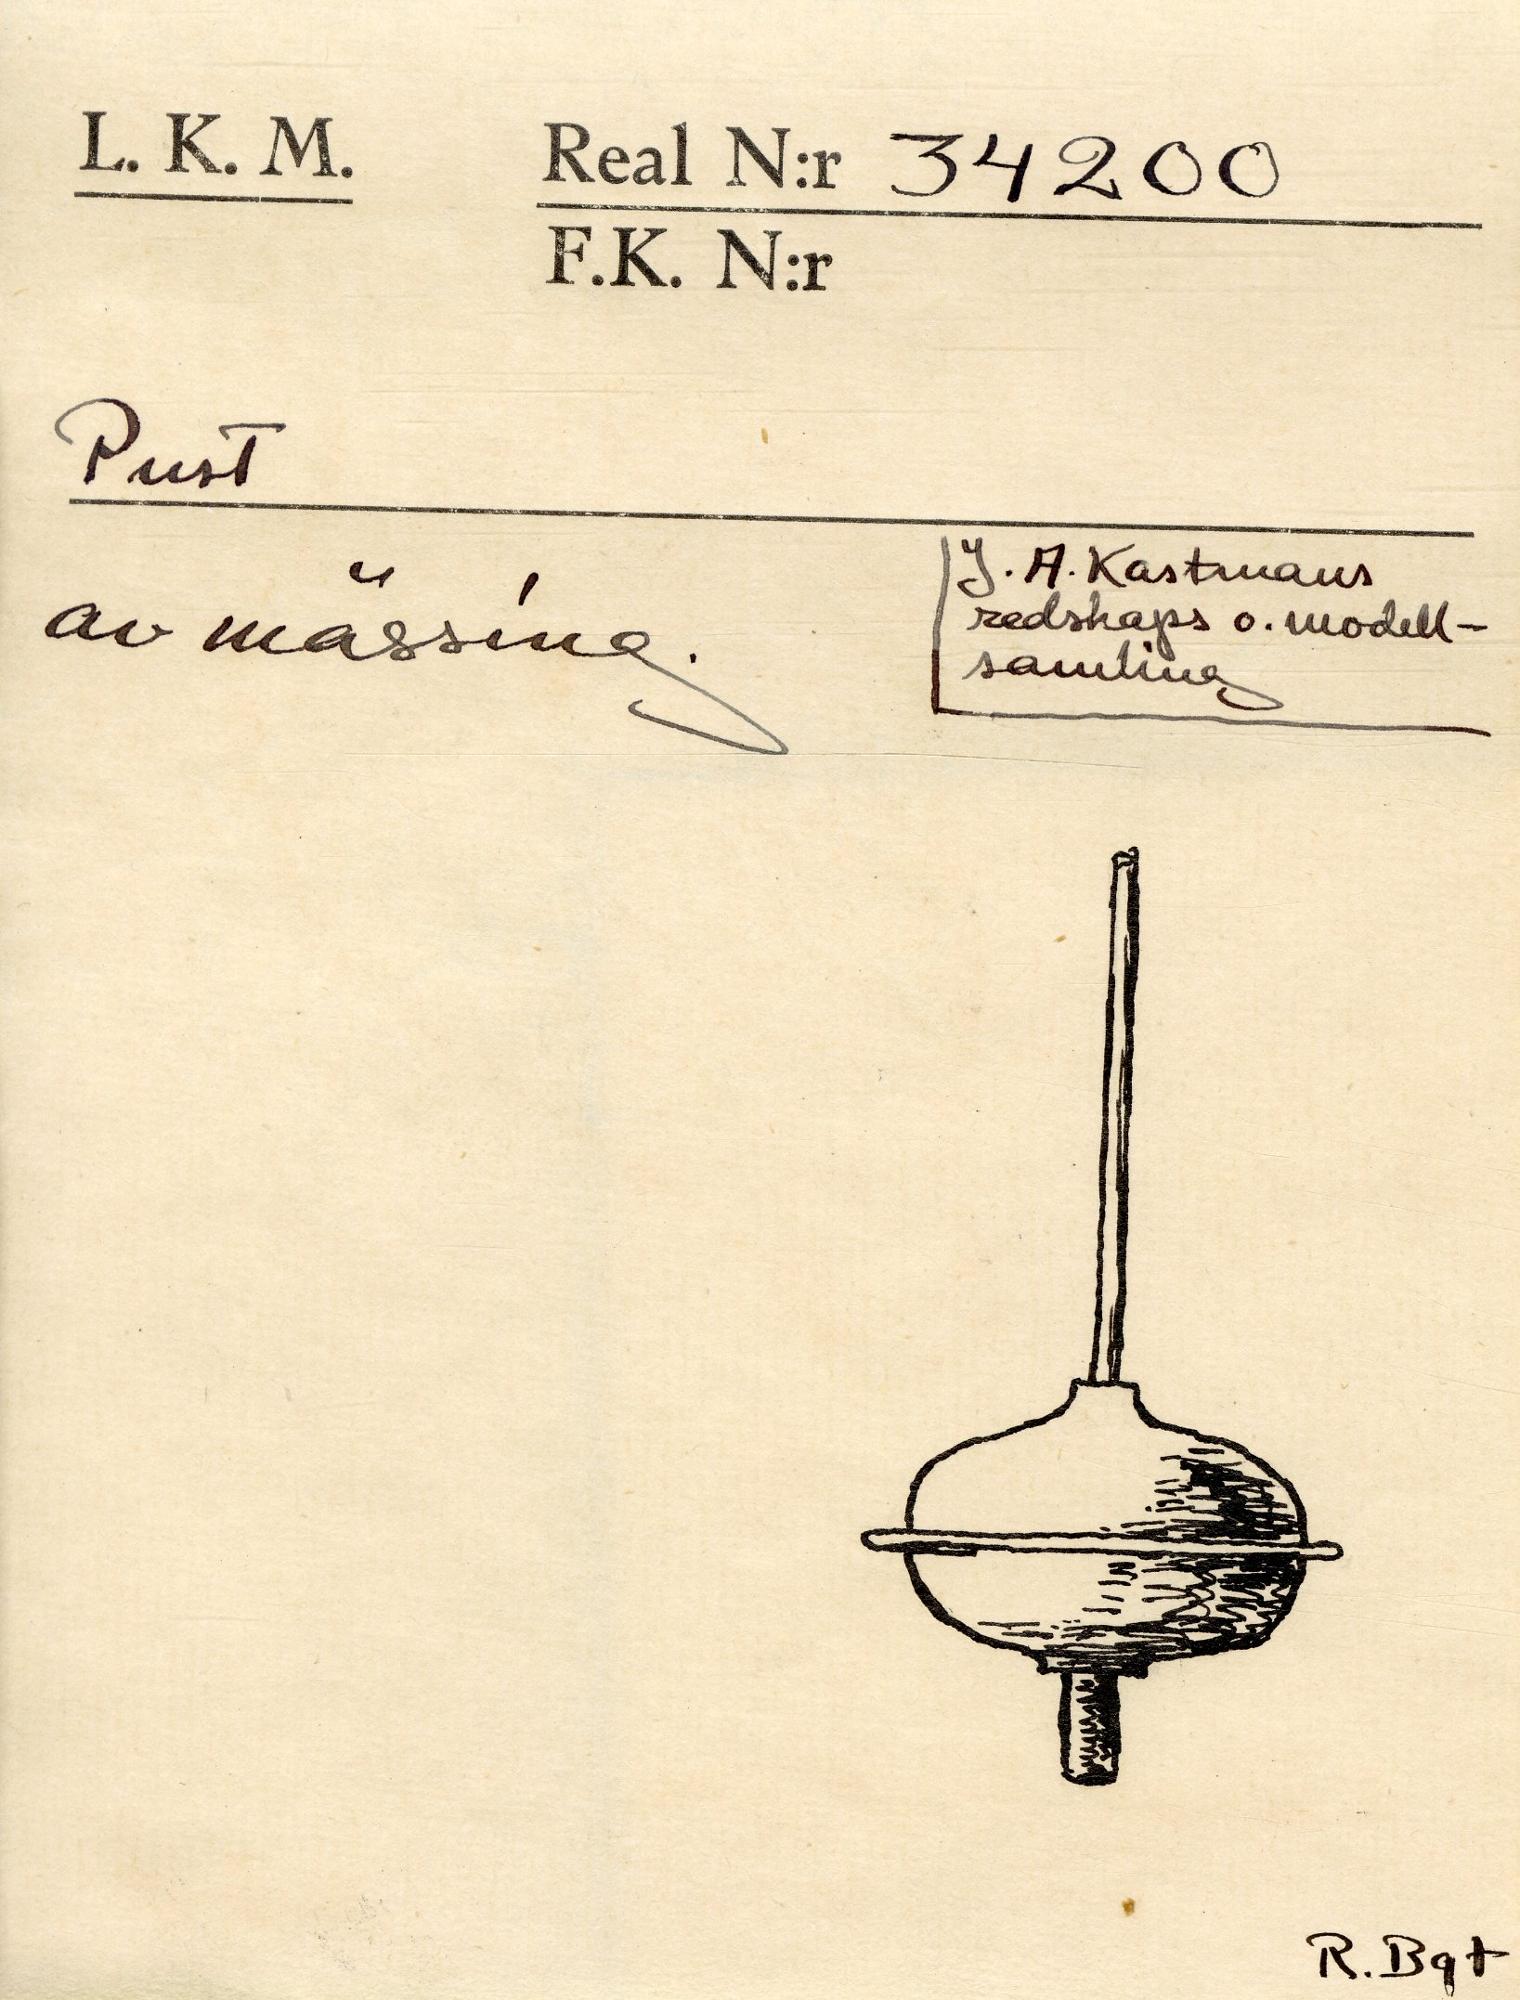 L. K. M.
Real N:r 34200
F.K. N:r
Pust
av mässing.
J. A. Kastmans
redskaps o. modell-
samling
R. Bqt